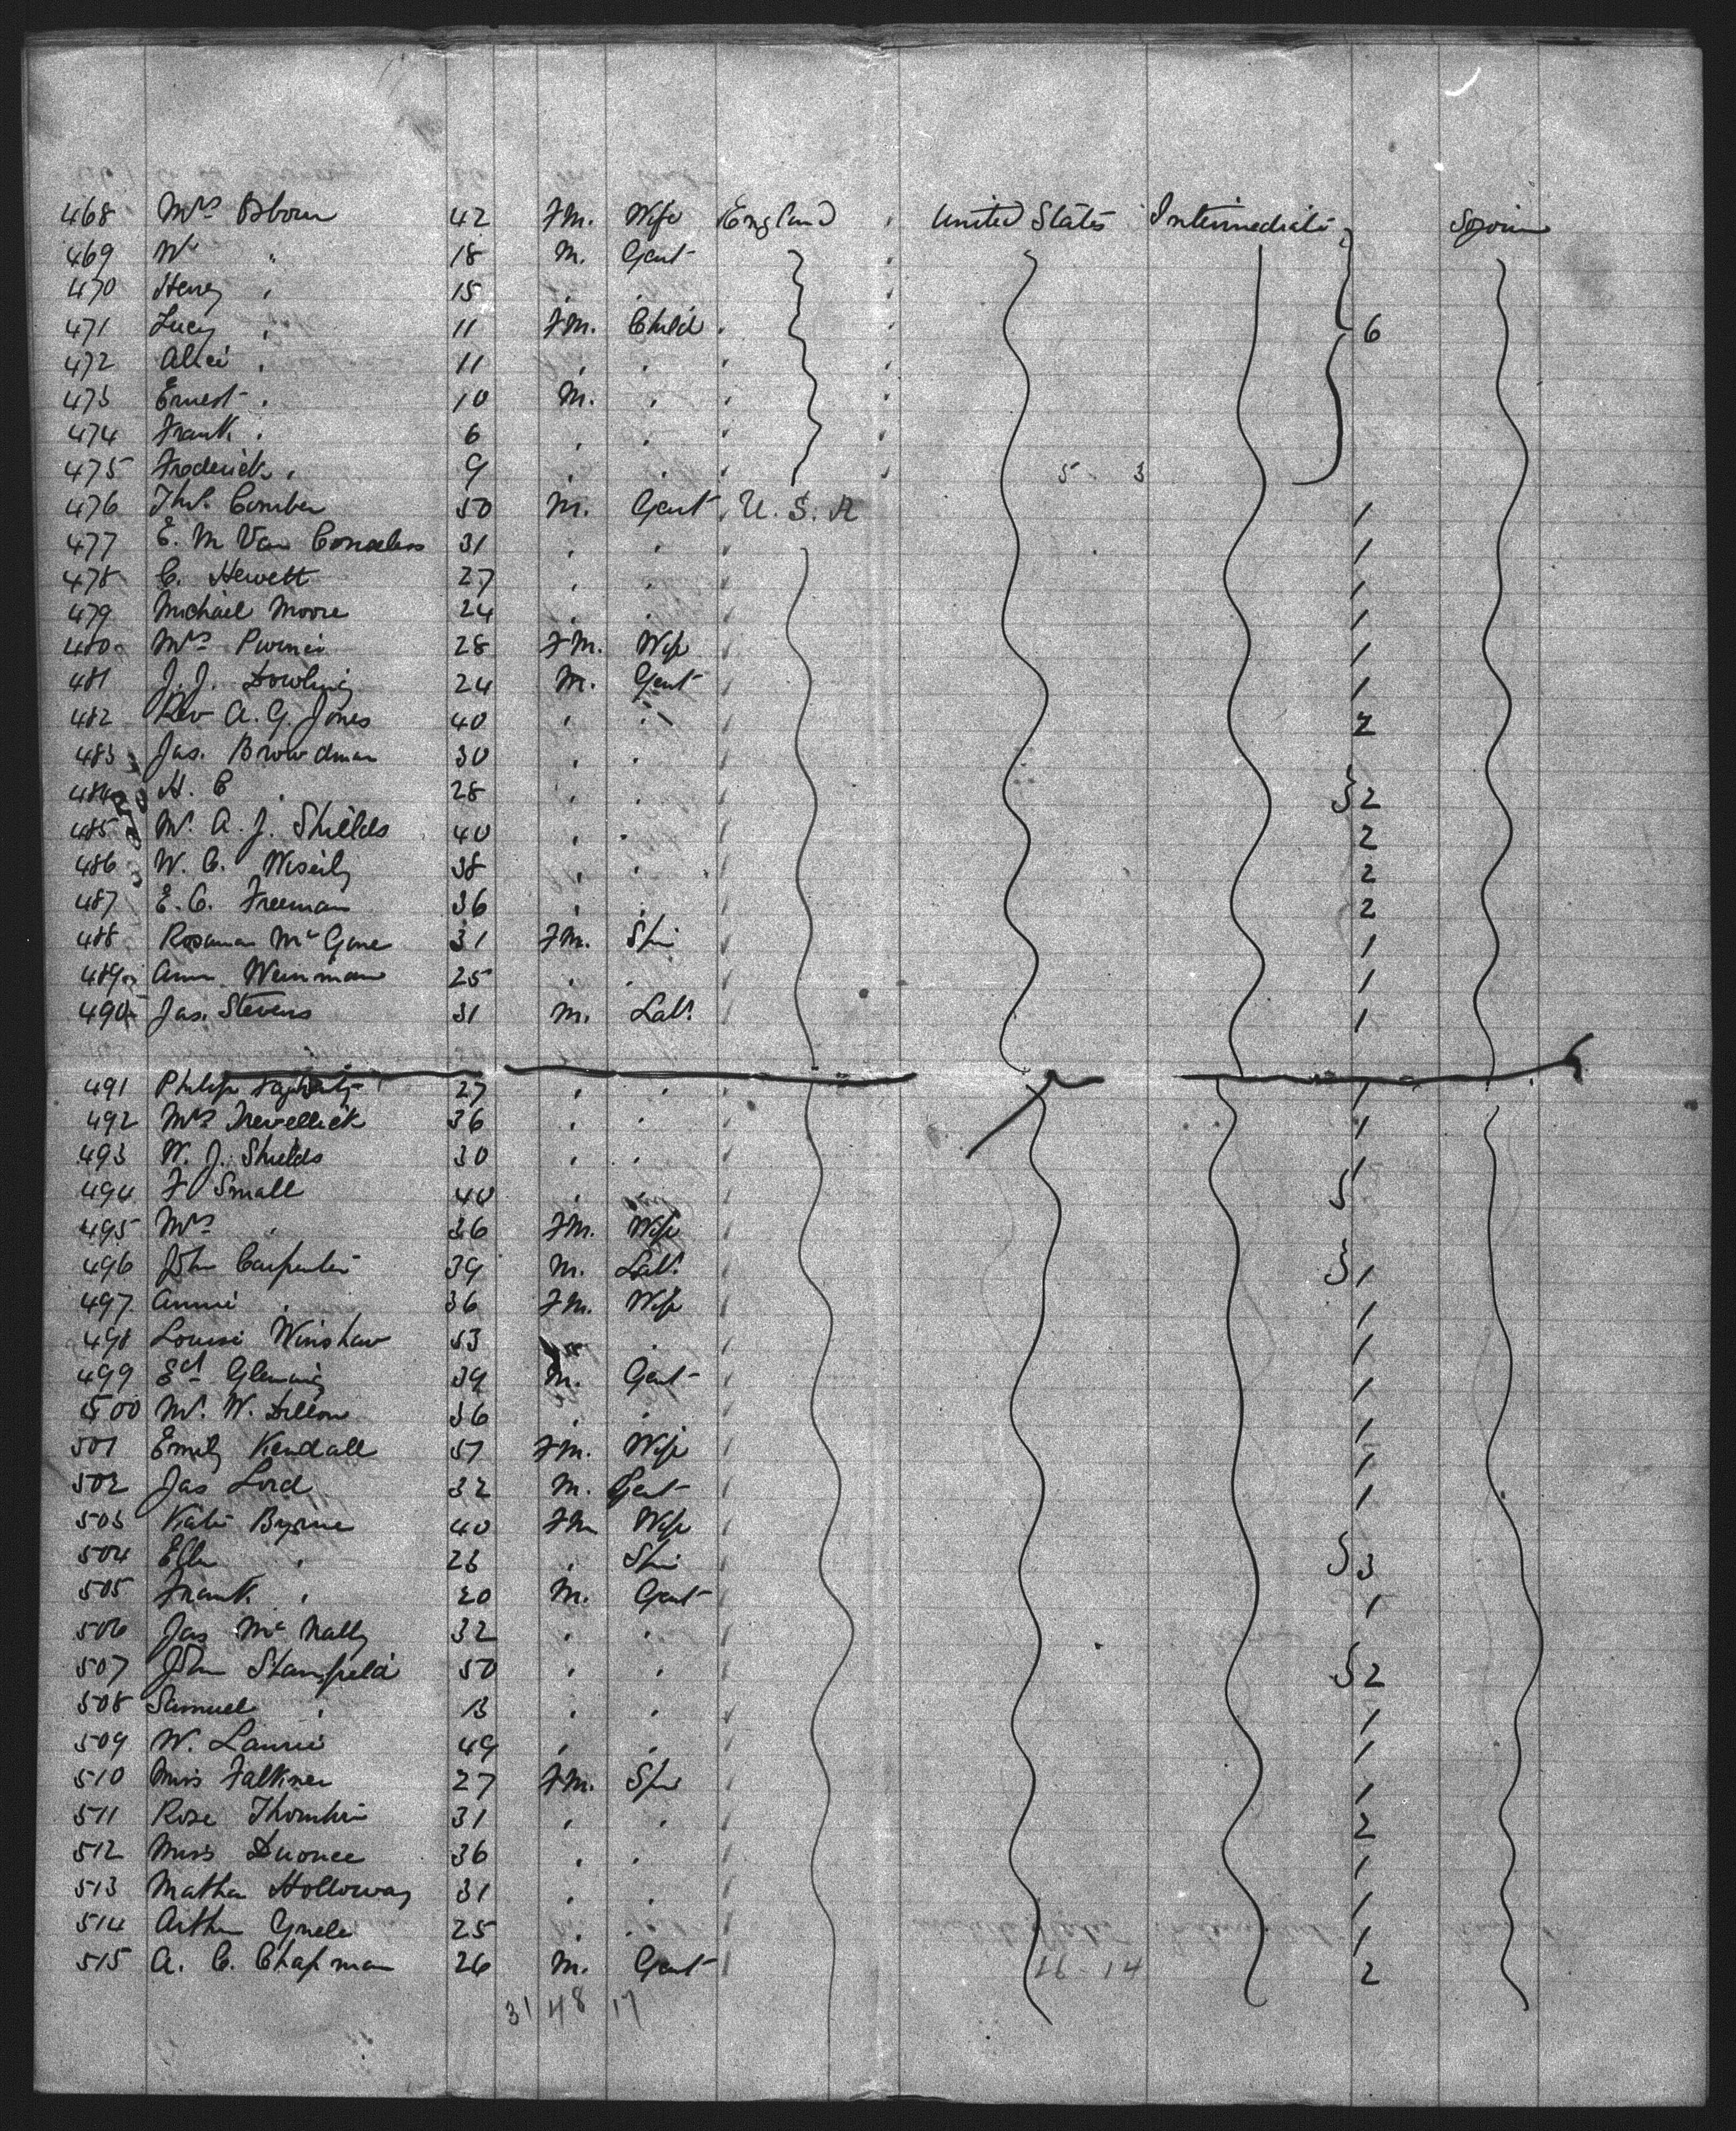 468 Mrs Osborn 42 Fm. Wife England United States Intermediate Sojourn
469 Wm " 18 M. Gent
470 Henry " 15 " "
471 Lucy " 11 Fm. Child 6
472 Alice " 11 " "
473 Ernest " 10 M. "
474 Frank " 6 " "
475 Frederick " 9 " " 5 - 3
476 Thos. Comber 50 M. Gent U. S. A 1
477 E. M Van 31 " " 1
478 C. Hewett 27 " " 1
479 Michael Moore 24 " " 1
480 Mrs 28 Fm. Wife 1
481 J. J. Dowling 24 M. Gent 1
482 Rev A. G. Jones 40 " " 2
483 Jas. Browdman 30 " "
484 H. C " 28 " " 2
485 W. A. J. Shields 40 " " 2
486 W. C. 38 " " 2
487 E. C. Freeman 36 " " 2
488 Rosanna Mc Gone 31 Fm. Spin 1
489 Ann Weinman 25 " " 1
490 Jas. Stevens 31 M. Labr 1
491 Philip 27 " " 1
492 Mrs Trevellick 36 " " 1
493 W. J. Shields 30 " " 1
494 F Small 40 " "
495 Mrs " 36 Fm. Wife
496 John Carpenter 39 M. Labr 1
497 Annie " 36 Fm. Wife 1
498 Louise Winshaw 53 " 1
499 Ed Glenning 39 M. Gent 1
500 M. W. Dillon 36 " " 1
501 Emily Kendall 51 Fm. Wife 1
502 Jas Lord 32 M. Gent 1
503 Kate Byrne 40 Fm Wife
504 Ellen " 23 " Spin 3
505 Frank " 20 M. Gent 1
506 Jas Mc Nally 32 " "
507 John Stansfield 50 " " 2
508 Samuel " 13 " " 1
509 W. Laurie 49 " " 1
510 Miss Falkner 27 Fm. Spin 1
511 Rose 31 " " 2
512 Miss 36 " " 1
513 Matha Holloway 31 " " 1
514 Arthur 25 " " 1
515 A. C. Chapman 26 M. Gent 16 - 14 2
31 48 17